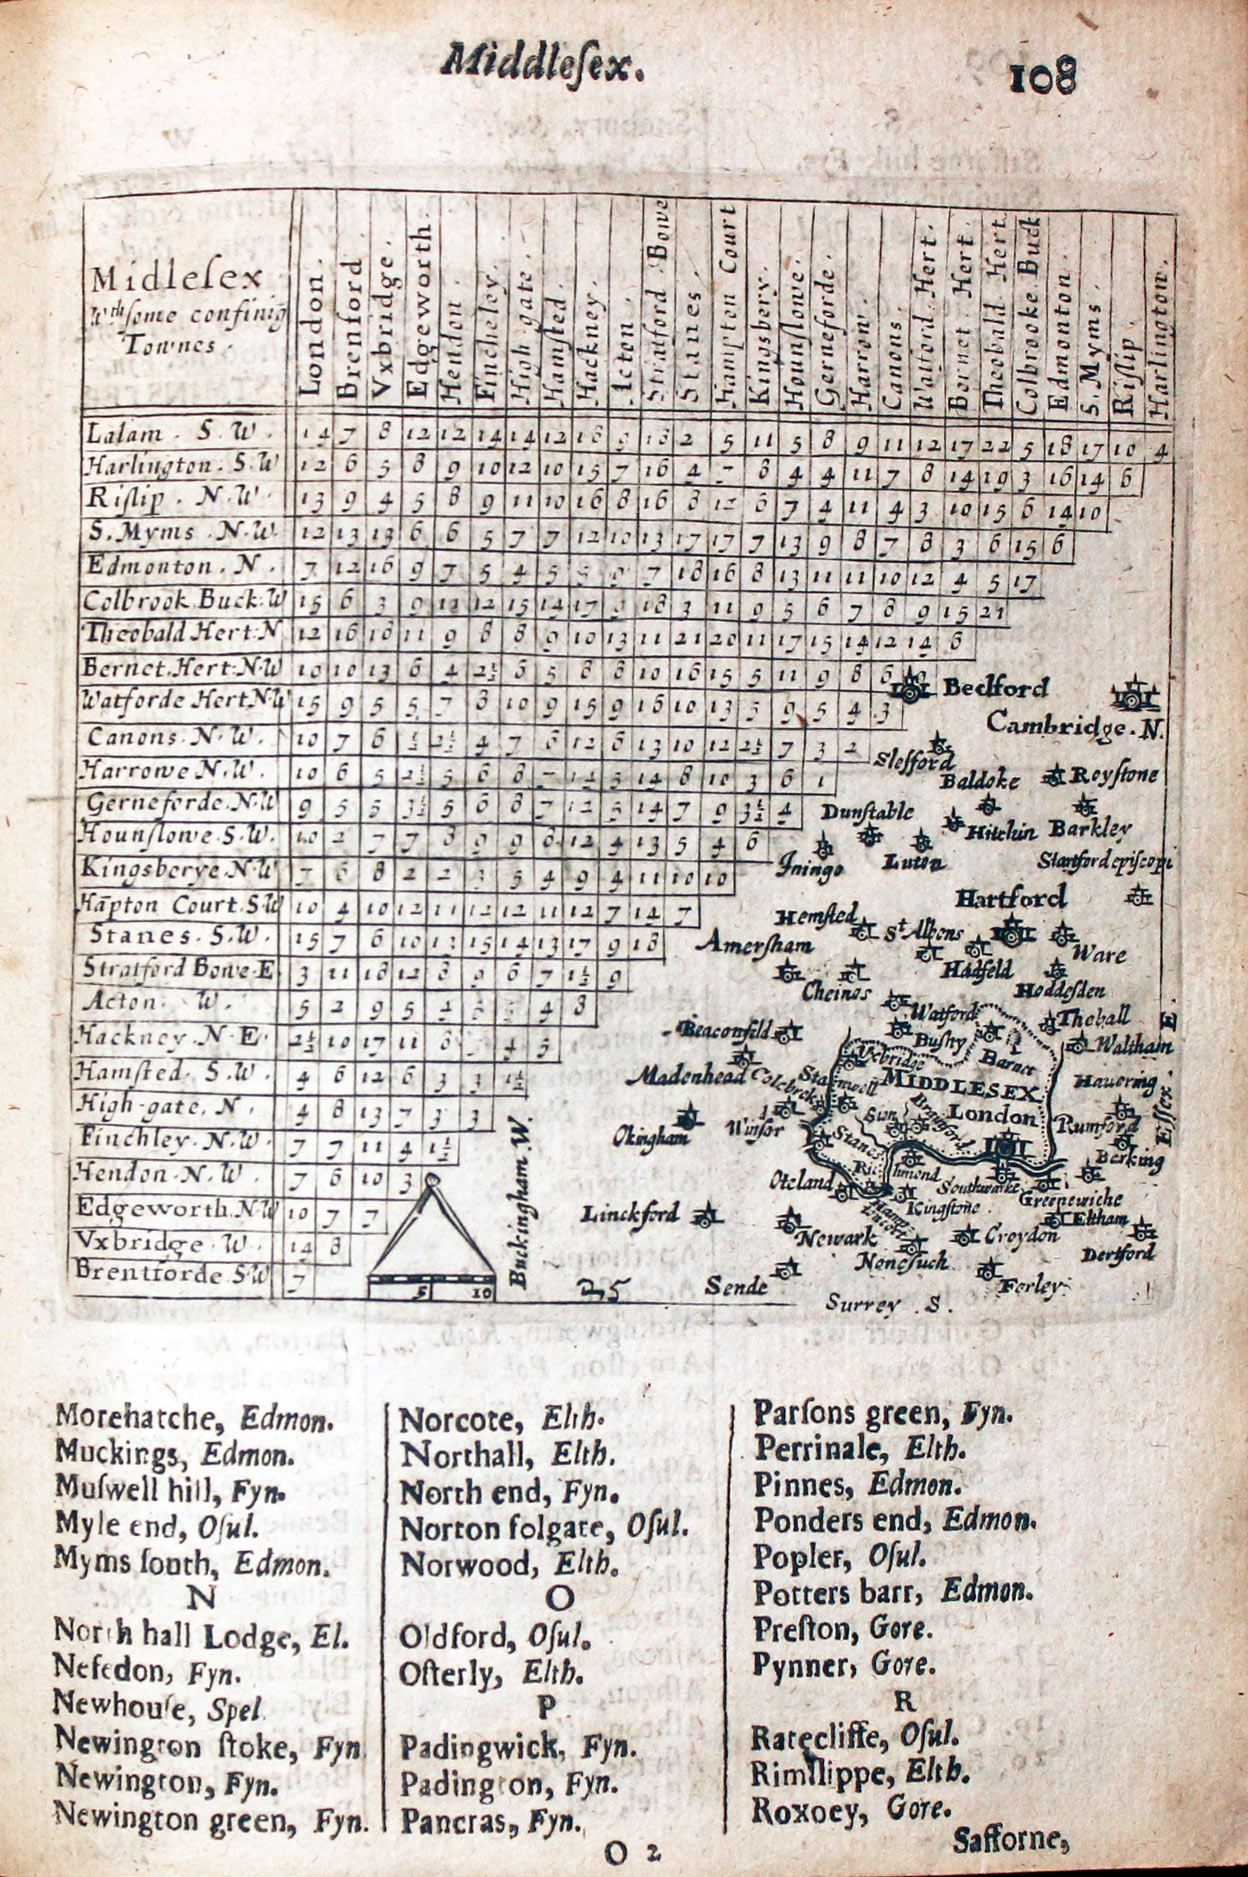 Middleſex.
108
Midleſex
Wth ſome confinig
Townes.
London.
Brenford
Vxbridge.
Edgeworth.
Hendon.
Fincheley.
High-gate.
Hamſted.
Hackney.
Acton.
Stratford Bowe
Stanes.
Hampton Court
Kingsbery.
Hounſlowe.
Gerneforde.
Harrow.
Canons.
Watford Hert.
Bernet Hert.
Theobald Hert
Colbrooke Buck
Edmonton.
S. Myms.
Riſlip.
Harlington.
Lalam. S. W. 14 7 8 12 12 14 14 12 18 9 18 2 5 11 5 8 9 11 12 17 22 5 18 17 10 4
Harlington. S. W 12 6 5 8 9 10 12 10 15 7 16 4 7 8 4 4 11 7 8 14 19 3 16 14 6
Riſlip. N. W. 13 9 4 5 8 9 11 10 16 8 16 8 12 6 7 4 11 4 3 10 15 6 14 10
S. Myms. N. W. 12 13 13 6 6 5 7 7 12 10 13 17 17 7 13 9 8 7 8 3 6 15 6
Edmonton. N. 7 12 16 9 7 5 4 5 5 9 7 18 16 8 13 11 11 10 12 4 5 17
Colbrook Buck. W 15 6 3 9 11 12 15 14 17 9 18 3 11 9 5 6 7 8 9 15 21
Theobald Hert: N 12 16 18 11 9 8 8 9 10 13 11 21 20 11 17 15 14 12 14 6
Bernet. Hert: N. W 10 10 13 6 4 2½ 6 5 8 8 10 16 15 5 11 9 8 6 9
Watforde Hert N. W 15 9 5 5 7 8 10 9 15 9 16 10 13 5 9 5 4 3
Canons. N. W. 10 7 6 ½ 2½ 4 7 6 12 6 13 10 12 2½ 7 3 2
Harrowe N. W. 10 6 5 2½ 5 6 8 7 14 5 14 8 10 3 6 1
Gerneforde. N. W 9 5 5 3½ 5 6 8 7 12 5 14 7 9 3½ 4
Hounſlowe. S. W. 10 2 7 7 8 9 9 8 12 4 13 5 4 6
Kingsberye. N. W 7 6 8 2 2 3 5 4 9 4 11 10 10
Hāpton Court. S. W 10 4 10 12 11 12 12 11 12 7 14 7
Stanes. S. W. 15 7 6 10 13 15 14 13 17 9 18
Stratford Bowe. E. 3 11 18 12 8 9 6 7 1½ 9
Acton. W. 5 2 9 5 4 4 8
Hackney. N. E. 2½ 10 17 11 8 4 5
Hamſted. S. W. 4 6 12 6 3 3 1½
High-gate. N. 4 8 13 7 3 3
Finchley. N. W. 7 7 11 4 1½
Hendon. N. W. 7 6 10 3
Edgeworth. N. W 10 7 7
Vxbridge. W. 14 8
Brentforde S. W 7
5 10
Buckingham. W.
25
Bedford
Cambridge. N.
Sleſford
Baldoke
Royſtone
Dunſtable
Hitchin
Barkley
Jningo
Luton
Startford epiſcopi
Hartford
Hemſted
St Albons
Ware
Amerſham
Hadfeld
Cheines
Hoddeſden
Watford
Theball
Beaconfild
Buſhy
Barnet
Waltham
Vxbridge
Madenhead
Colebrok
Stanwell
MIDDLESEX
Hauering
London
Rumford
Eſſex. E.
Okingham
Winſor
Sion
Branford
Stanes
Berking
Richmond
Southwarke
Oteland
Greenewiche
Kingſtone
Linckford
Hampt. Court
Eltham
Newark
Croydon
Dertford
Noneſuch
Sende
Ferley
Surrey. S.
Morehatche, Edmon.
Muckings, Edmon.
Muſwell hill, Fyn.
Myle end, Oſul.
Myms ſouth, Edmon.
N
North hall Lodge, El.
Neſedon, Fyn.
Newhouſe, Spel.
Newington ſtoke, Fyn
Newington, Fyn.
Newington green, Fyn.
Norcote, Elth.
Northall, Elth.
North end, Fyn.
Norton folgate, Oſul.
Norwood, Elth.
O
Oldford, Oſul.
Oſterly, Elth.
P
Padingwick, Fyn.
Padington, Fyn.
Pancras, Fyn.
Parſons green, Fyn.
Perrinale, Elth.
Pinnes, Edmon.
Ponders end, Edmon.
Popler, Oſul.
Potters barr, Edmon.
Preſton, Gore.
Pynner, Gore.
R
Ratecliffe, Oſul.
Rimſlippe, Elth.
Roxoey, Gore.
O 2
Safforne,